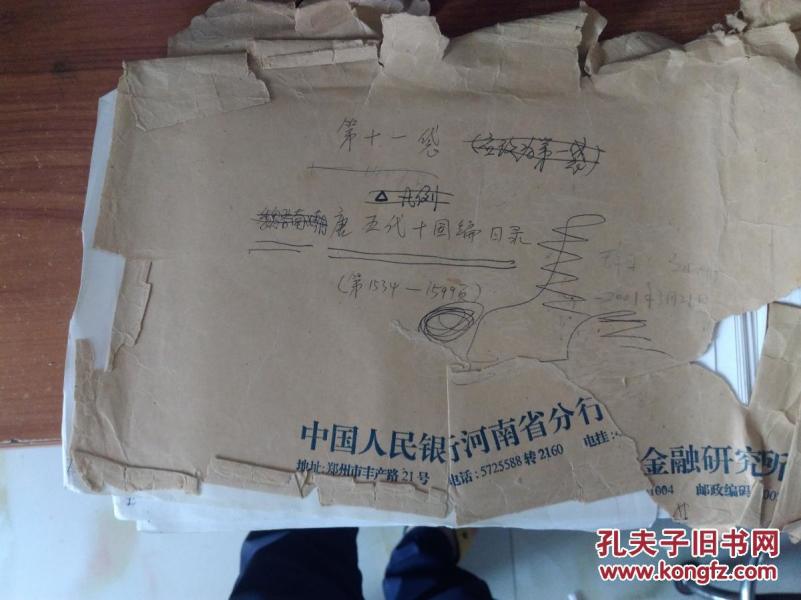 第十一袋
凡例
唐五代十国编目录
(第1534—1599页)
2001年3月21日
中国人民银行河南省分行 金融研究所
地址:郑州市丰产路21号 电话:5725588转2160 电挂: 1004 邮政编码
孔夫子旧书网
www.kongfz.com